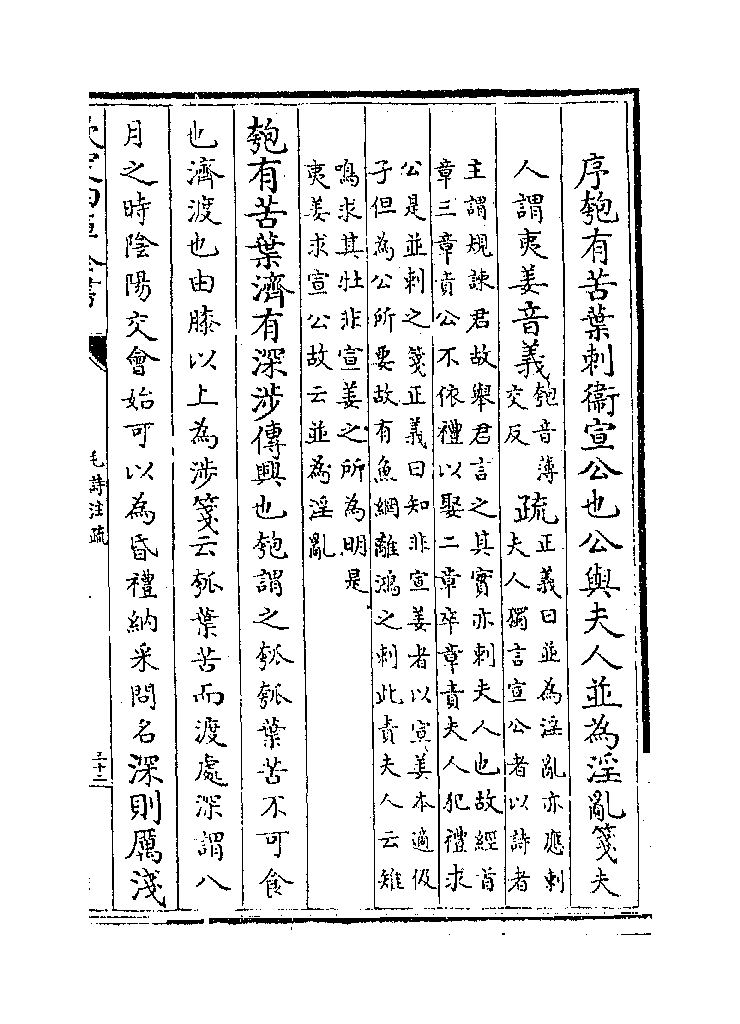 序匏有苦葉刺衞宣公也公與夫人並為淫亂箋夫
人謂夷姜音義匏音薄
交反
疏正義曰並為淫亂亦應刺
夫人獨言宣公者以詩者
主謂規諫君故舉君言之其實亦刺夫人也故經首
章三章責公不依禮以娶二章卒章責夫人犯禮求
公是並刺之箋正義曰知非宣姜者以宣姜本適伋
子但為公所要故有魚網離鴻之刺此責夫人云雉
鳴求其牡非宣姜之所為明是
夷姜求宣公故云並為淫亂
匏有苦葉濟有深涉傳興也匏謂之瓠瓠葉苦不可食
也濟渡也由膝以上為涉箋云瓠葉苦而渡處深謂八
月之時陰陽交會始可以為昏禮納采問名深則厲淺
欽定四庫全書
毛詩注疏